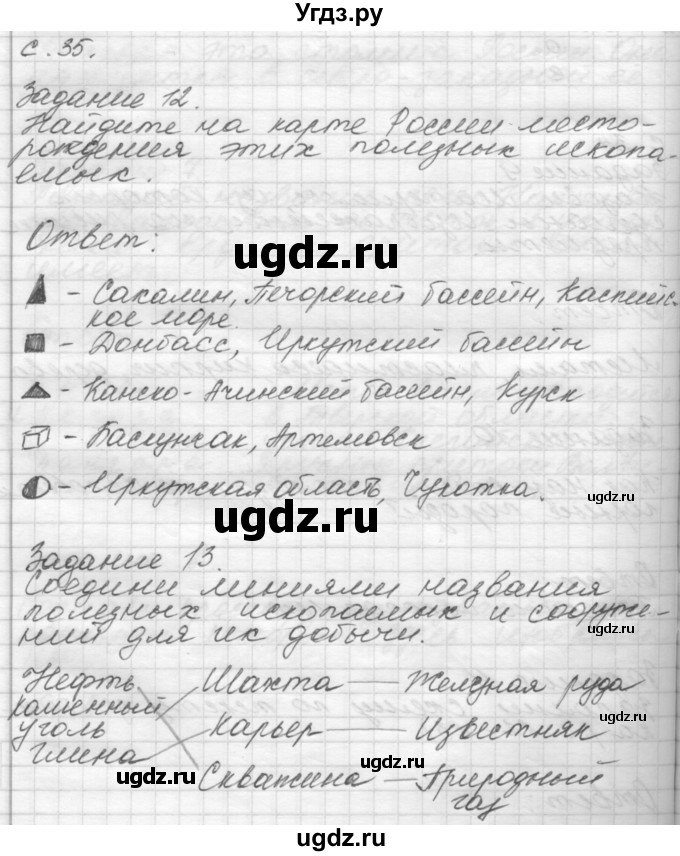 Угдз.ру
с. 35.
Задание 12.
Найдите на карте России место-
рождения этих полезных ископа-
емых.
Ответ:
ugdz.ru
- Сахалин, Печорский бассейн, Каспийс-
кое море.
- Донбасс, Иркутский бассейн
- Канско-Ачинский бассейн, Курск
- Баскунчак, Артемовск
- Иркутская область, Чукотка.
ugdz.ru
ugdz.ru
Задание 13.
Соедини линиями названия
полезных ископаемых и сооруже-
ний для их добычи.
ugdz.ru
Нефть Шахта Железная руда
каменный
уголь Карьер Известняк
ugdz.ru
глина Скважина Природный
газ
ugdz.ru
ugdz.ru
ugdz.ru